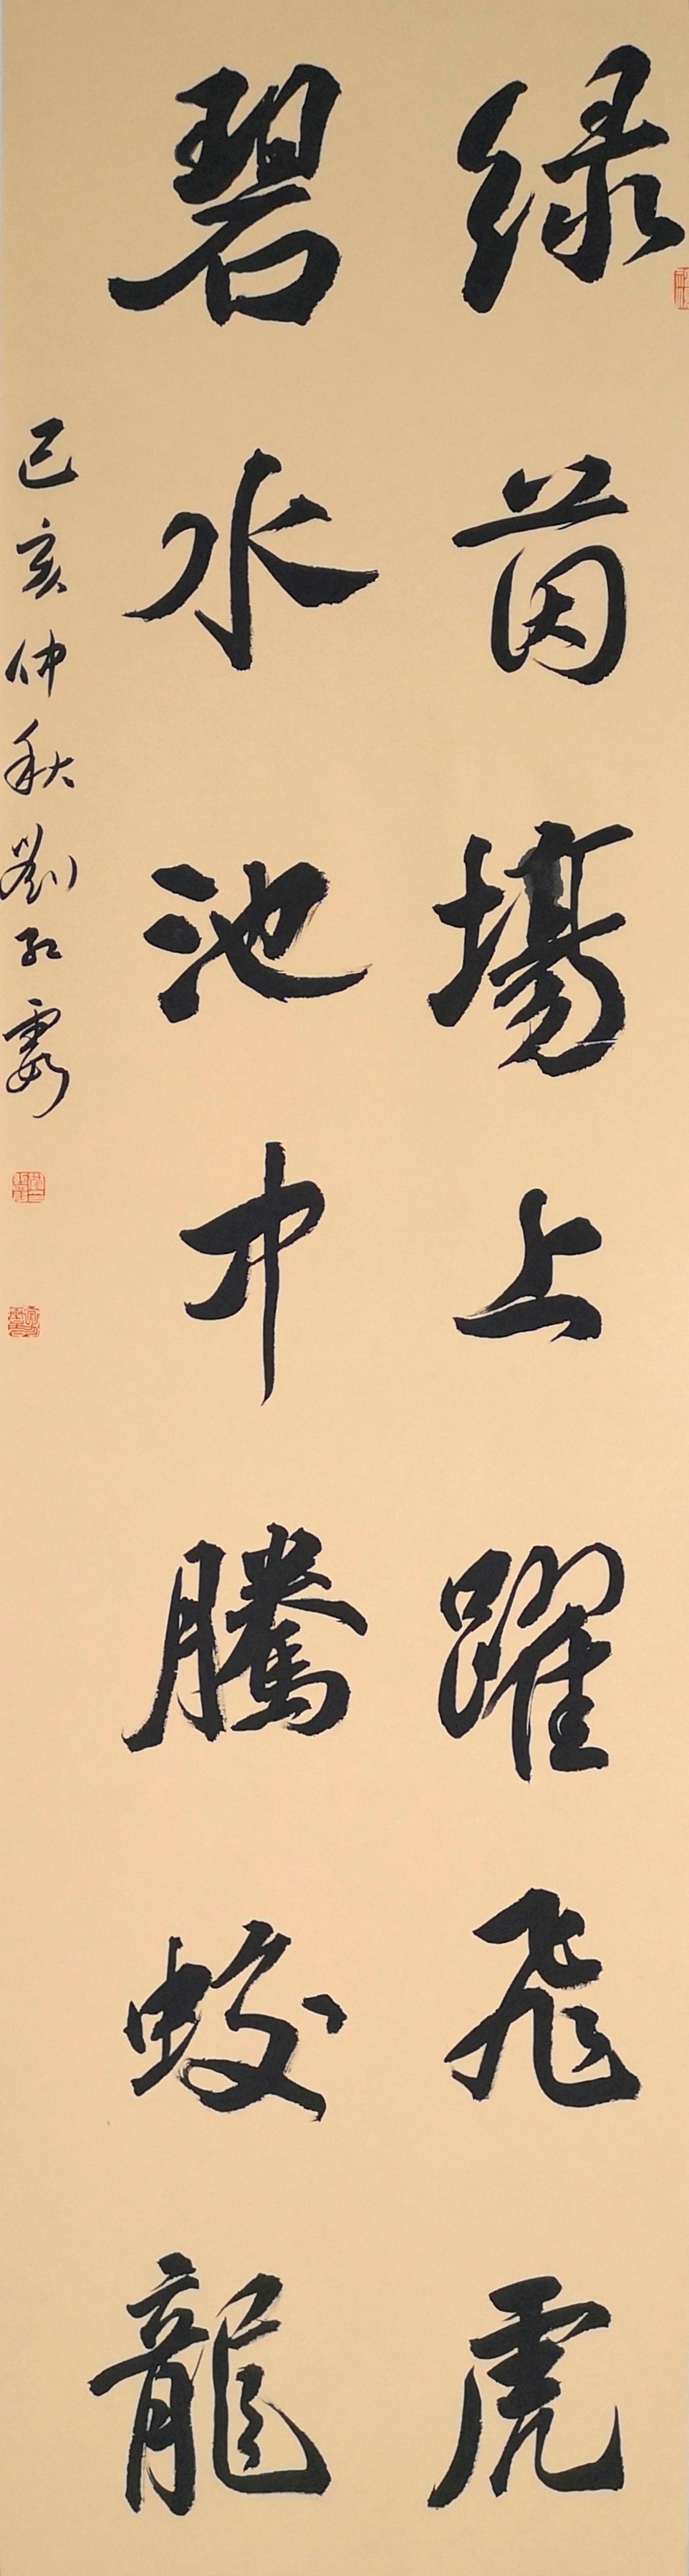 绿茵場上躍飛虎
碧水池中騰蛟龍
己亥仲秋劉红霞